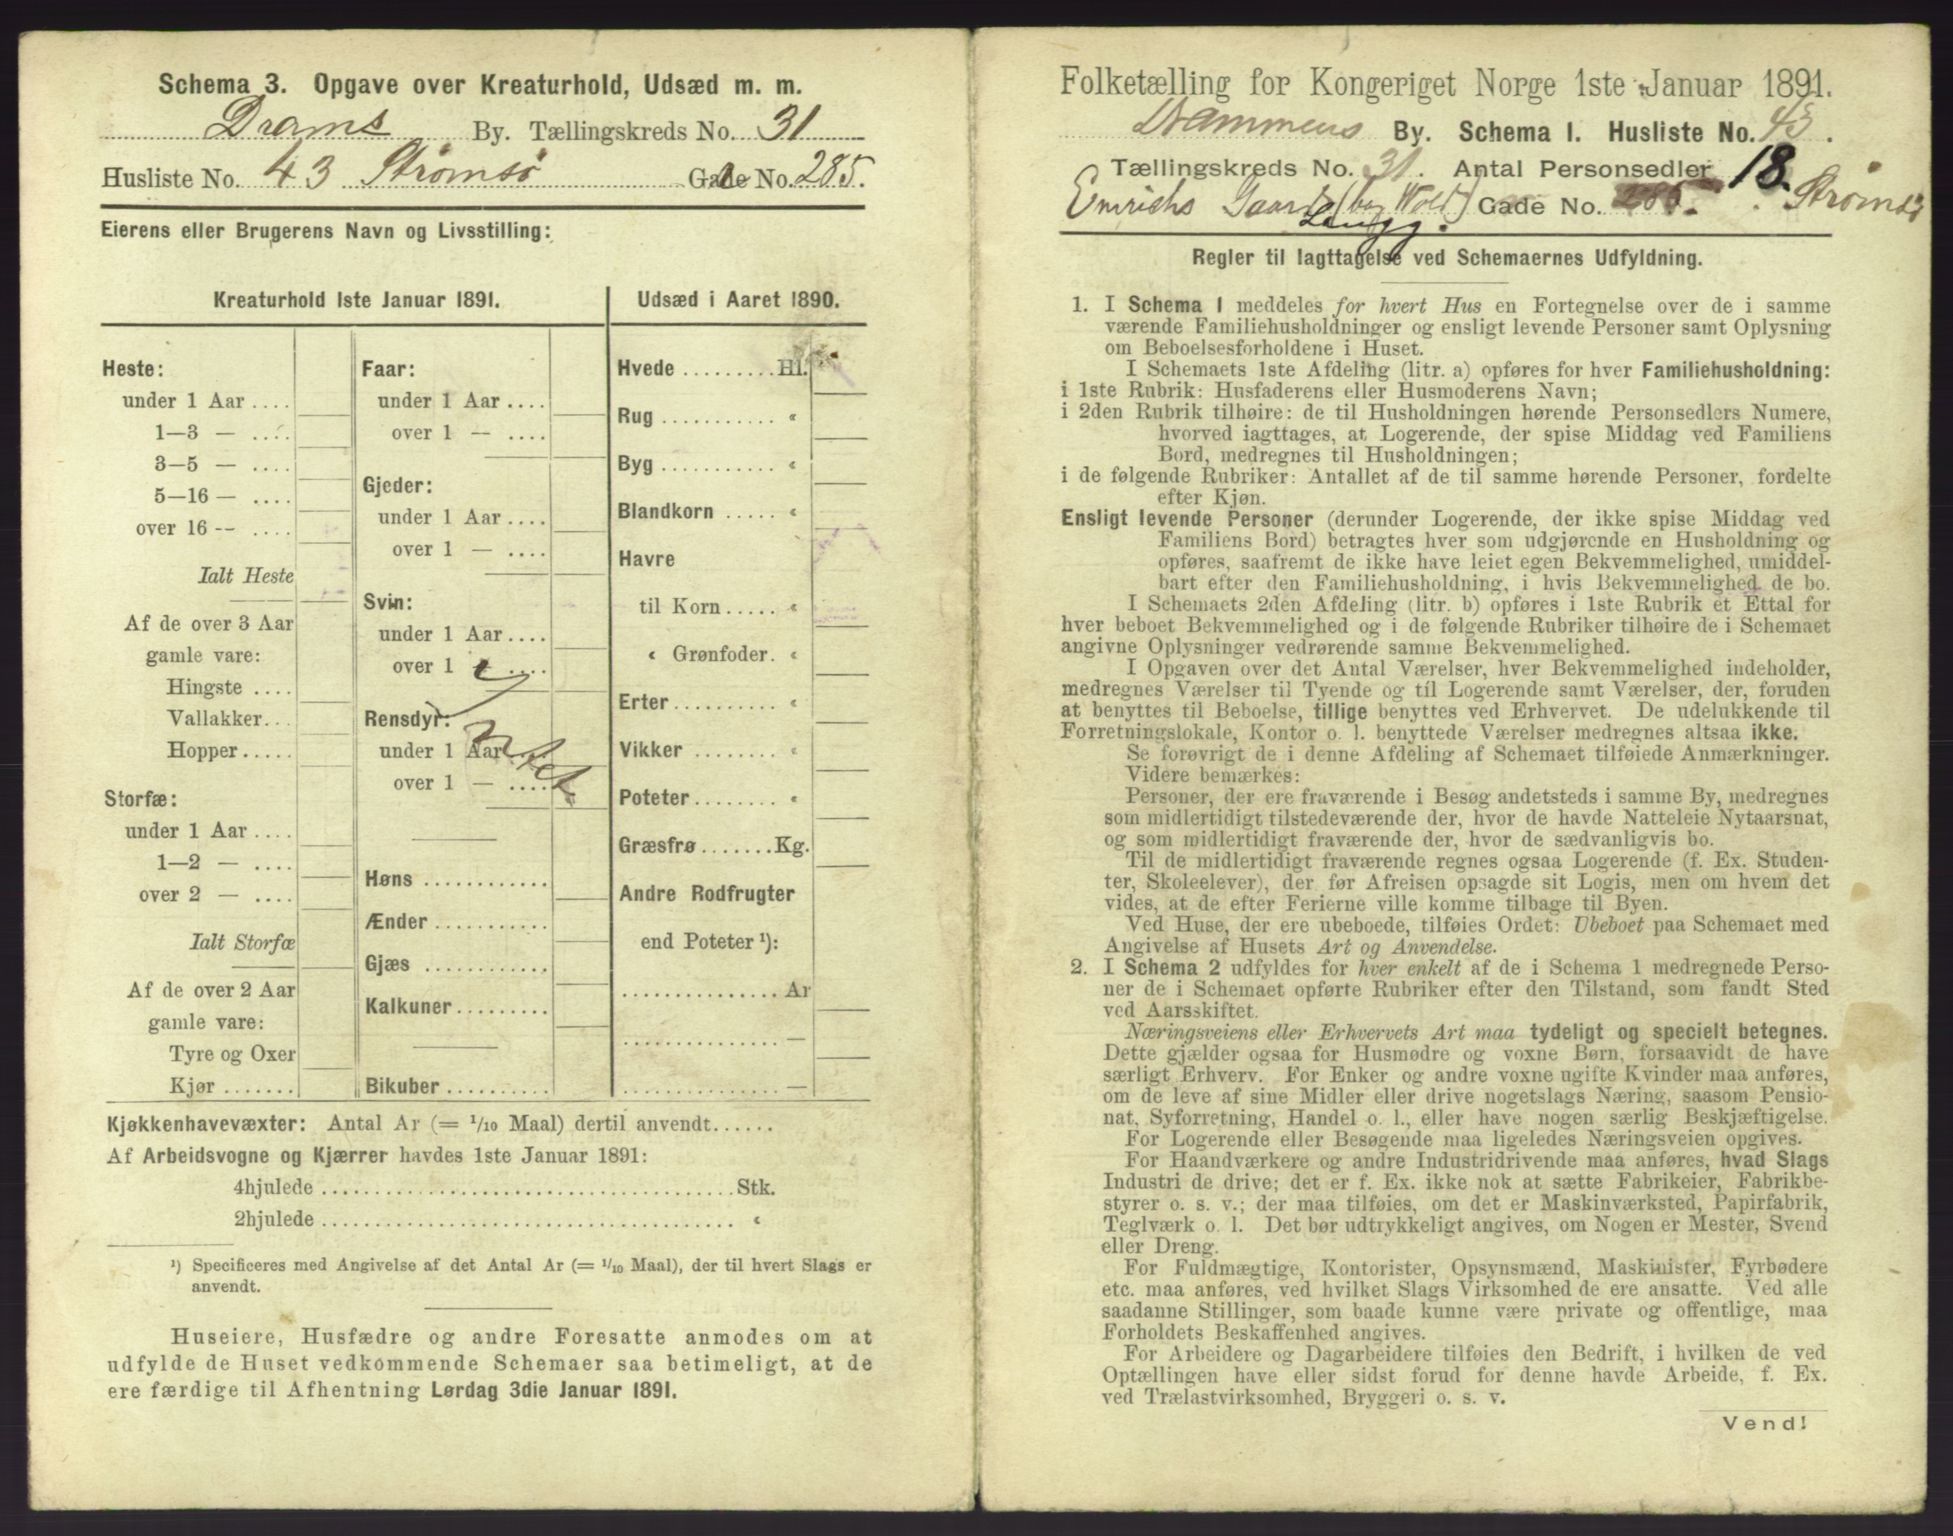 Schema 3. Opgave over Kreaturhold, Udsæd m. m.
Drams By. Tællingskreds No. 31
Husliste No. 43 Strømsø Gade No. 285.
Eierens eller Brugerens Navn og Livsstilling:
Kreaturhold 1ste Januar 1891.
Heste:
under 1 Aar ....
1—3 — ....
3—5 — ....
5—16 — ....
over 16 -- ....
Ialt Heste
Af de over 3 Aar
gamle vare:
Hingste ....
Vallakker...
Hopper.....
Storfæ:
under 1 Aar ....
1—2 — ....
over 2 — ....
Ialt Storfæ
Af de over 2 Aar
gamle vare:
Tyre og Oxer
Kjør .......
Faar:
under 1 Aar ....
over 1 — ....
Gjeder:
under 1 Aar ....
over 1 — ....
Svin:
under 1 Aar ....
over 1 — ....
Rensdyr:
under 1 Aar
over 1 — ....
Intet
Høns ............
Ænder ...........
Gjæs ............
Kalkuner.........
Bikuber ..........
Udsæd i Aaret 1890.
Hvede .........Hl.
Rug ........... «
Byg ........... «
Blandkorn ..... «
Havre
til Korn ..... «
« Grønfoder. «
Erter.......... «
Vikker ........ «
Poteter........ «
Græsfrø .......Kg.
Andre Rodfrugter
end Poteter ¹):
...............Ar
............... —
............... —
Kjøkkenhavevæxter: Antal Ar (= 1/10 Maal) dertil anvendt......
Af Arbeidsvogne og Kjærrer havdes 1ste Januar 1891:
4hjulede ........................................Stk.
2hjulede ........................................ «
¹) Specificeres med Angivelse af det Antal Ar (= 1/10 Maal), der til hvert Slags er
anvendt.
Huseiere, Husfædre og andre Foresatte anmodes om at
udfylde de Huset vedkommende Schemaer saa betimeligt, at de
ere færdige til Afhentning Lørdag 3die Januar 1891.
Folketælling for Kongeriget Norge 1ste Januar 1891.
Drammens By. Schema 1. Husliste No. 43.
Tællingskreds No. 31. Antal Personsedler 18.
Emrichs Gaard (bag Wold) Gade No. 285. Strømsø
Langg.
Regler til Iagttagelse ved Schemaernes Udfyldning.
1. I Schema 1 meddeles for hvert Hus en Fortegnelse over de i samme
værende Familiehusholdninger og ensligt levende Personer samt Oplysning
om Beboelsesforholdene i Huset.
I Schemaets 1ste Afdeling (litr. a) opføres for hver Familiehusholdning:
i 1ste Rubrik: Husfaderens eller Husmoderens Navn;
i 2den Rubrik tilhøire: de til Husholdningen hørende Personsedlers Numere,
hvorved iagttages, at Logerende, der spise Middag ved Familiens
Bord, medregnes til Husholdningen;
i de følgende Rubriker: Antallet af de til samme hørende Personer, fordelte
efter Kjøn.
Ensligt levende Personer (derunder Logerende, der ikke spise Middag ved
Familiens Bord) betragtes hver som udgjørende en Husholdning og
opføres, saafremt de ikke have leiet egen Bekvemmelighed, umiddel-
bart efter den Familiehusholdning, i hvis Bekvemmelighed de bo.
I Schemaets 2den Afdeling (litr. b) opføres i 1ste Rubrik et Ettal for
hver beboet Bekvemmelighed og i de følgende Rubriker tilhøire de i Schemaet
angivne Oplysninger vedrørende samme Bekvemmelighed.
I Opgaven over det Antal Værelser, hver Bekvemmelighed indeholder,
medregnes Værelser til Tyende og til Logerende samt Værelser, der, foruden
at benyttes til Beboelse, tillige benyttes ved Erhvervet. De udelukkende til
Forretningslokale, Kontor o. l. benyttede Værelser medregnes altsaa ikke.
Se forøvrigt de i denne Afdeling af Schemaet tilføiede Anmærkninger.
Videre bemærkes:
Personer, der ere fraværende i Besøg andetsteds i samme By, medregnes
som midlertidigt tilstedeværende der, hvor de havde Natteleie Nytaarsnat,
og som midlertidigt fraværende der, hvor de sædvanligvis bo.
Til de midlertidigt fraværende regnes ogsaa Logerende (f. Ex. Studen-
ter, Skoleelever), der før Afreisen opsagde sit Logis, men om hvem det
vides, at de efter Ferierne ville komme tilbage til Byen.
Ved Huse, der ere ubeboede, tilføies Ordet: Ubeboet paa Schemaet med
Angivelse af Husets Art og Anvendelse.
2. I Schema 2 udfyldes for hver enkelt af de i Schema 1 medregnede Perso-
ner de i Schemaet opførte Rubriker efter den Tilstand, som fandt Sted
ved Aarsskiftet.
Næringsveiens eller Erhvervets Art maa tydeligt og specielt betegnes.
Dette gjælder ogsaa for Husmødre og voxne Børn, forsaavidt de have
særligt Erhverv. For Enker og andre voxne ugifte Kvinder maa anføres,
om de leve af sine Midler eller drive nogetslags Næring, saasom Pensio-
nat, Syforretning, Handel o. l., eller have nogen særlig Beskjæftigelse.
For Logerende eller Besøgende maa ligeledes Næringsveien opgives.
For Haandværkere og andre Industridrivende maa anføres, hvad Slags
Industri de drive; det er f. Ex. ikke nok at sætte Fabrikeier, Fabrikbe-
styrer o. s. v.; der maa tilføies, om det er Maskinværksted, Papirfabrik,
Teglværk o. l. Det bør udtrykkeligt angives, om Nogen er Mester, Svend
eller Dreng.
For Fuldmægtige, Kontorister, Opsynsmænd, Maskinister, Fyrbødere
etc. maa anføres, ved hvilket Slags Virksomhed de ere ansatte. Ved alle
saadanne Stillinger, som baade kunne være private og offentlige, maa
Forholdets Beskaffenhed angives.
For Arbeidere og Dagarbeidere tilføies den Bedrift, i hvilken de ved
Optællingen have eller sidst forud for denne havde Arbeide, f. Ex.
ved Trælastvirksomhed, Bryggeri o. s. v.
Vend!